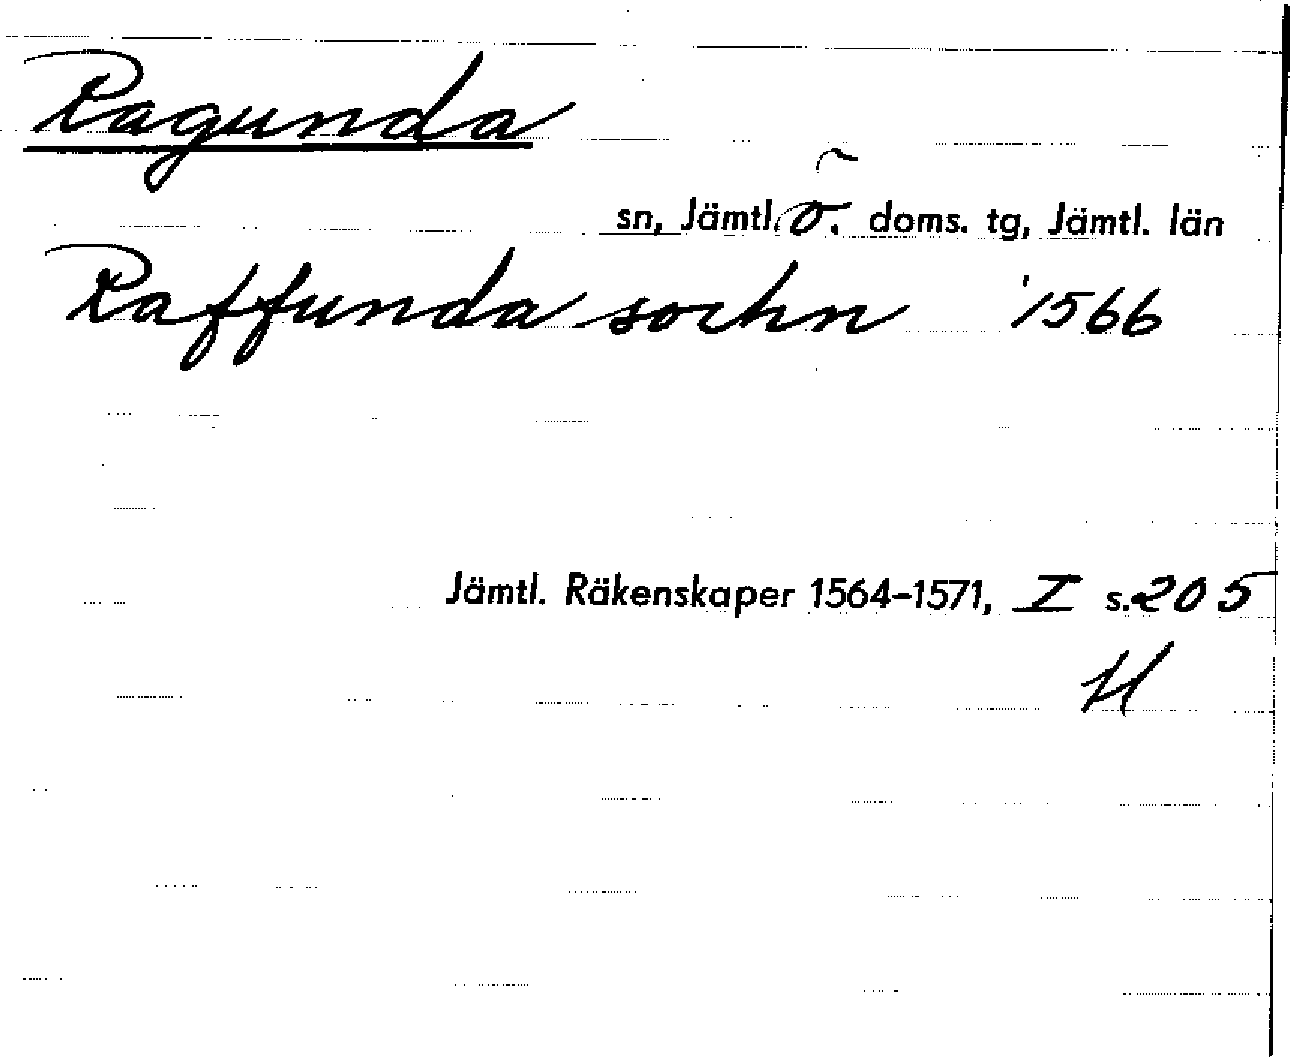 Ragunda
sn, Jämtl. ö. doms. tg, Jämtl. län
Raffunda sochn 1566
Jämtl. Räkenskaper 1564-1571, I s. 205
H